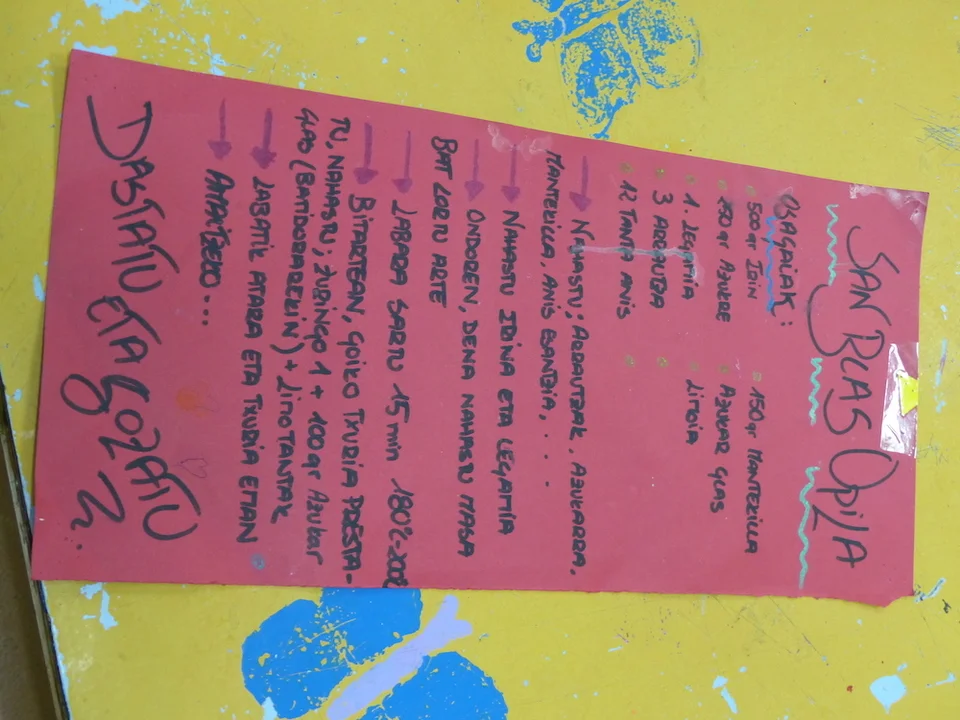 SAN BLAS OPILA
OSAGAIAK:
500 gr IRIN
250 gr AZUKRE
1. LEGAMIA
3 ARRAUTZA
12 TANTA ANIS
150 gr MANTEKILLA
AZUKAR GLAS
LIMOIA
NAHASTU; ARRAUTZAK, AZUKARRA,
MANTEKILLA, ANIS ESANTZIA, . . .
NAHASTU IRINA ETA LEGAMIA
ONDOREN, DENA NAHASTU MASA
BAT LORTU ARTE
LABARA SARTU 15 min 180ºC-200ºC
BITARTEAN, GOIKO TXURIA PRESTA-
TU, NAHASTU; ZURINGO 1 + 100gr AZUKAR
GLAS (BATIDORAREKIN) + LIMOI TANTAK
LABATIK ATARA ETA TXURIA EMAN
AMAITZEKO...
DASTATU ETA GOZATU